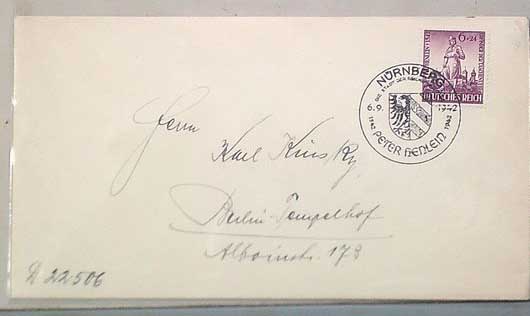 6+24
DEUTSCHES REICH
NÜRNBERG
DIE STADT DER
6.9. 1942
1542 PETER HENLEIN 1942
Herrn
Karl Kinsky
Berlin-Tempelhof
Alboinstr. 178
D 22506